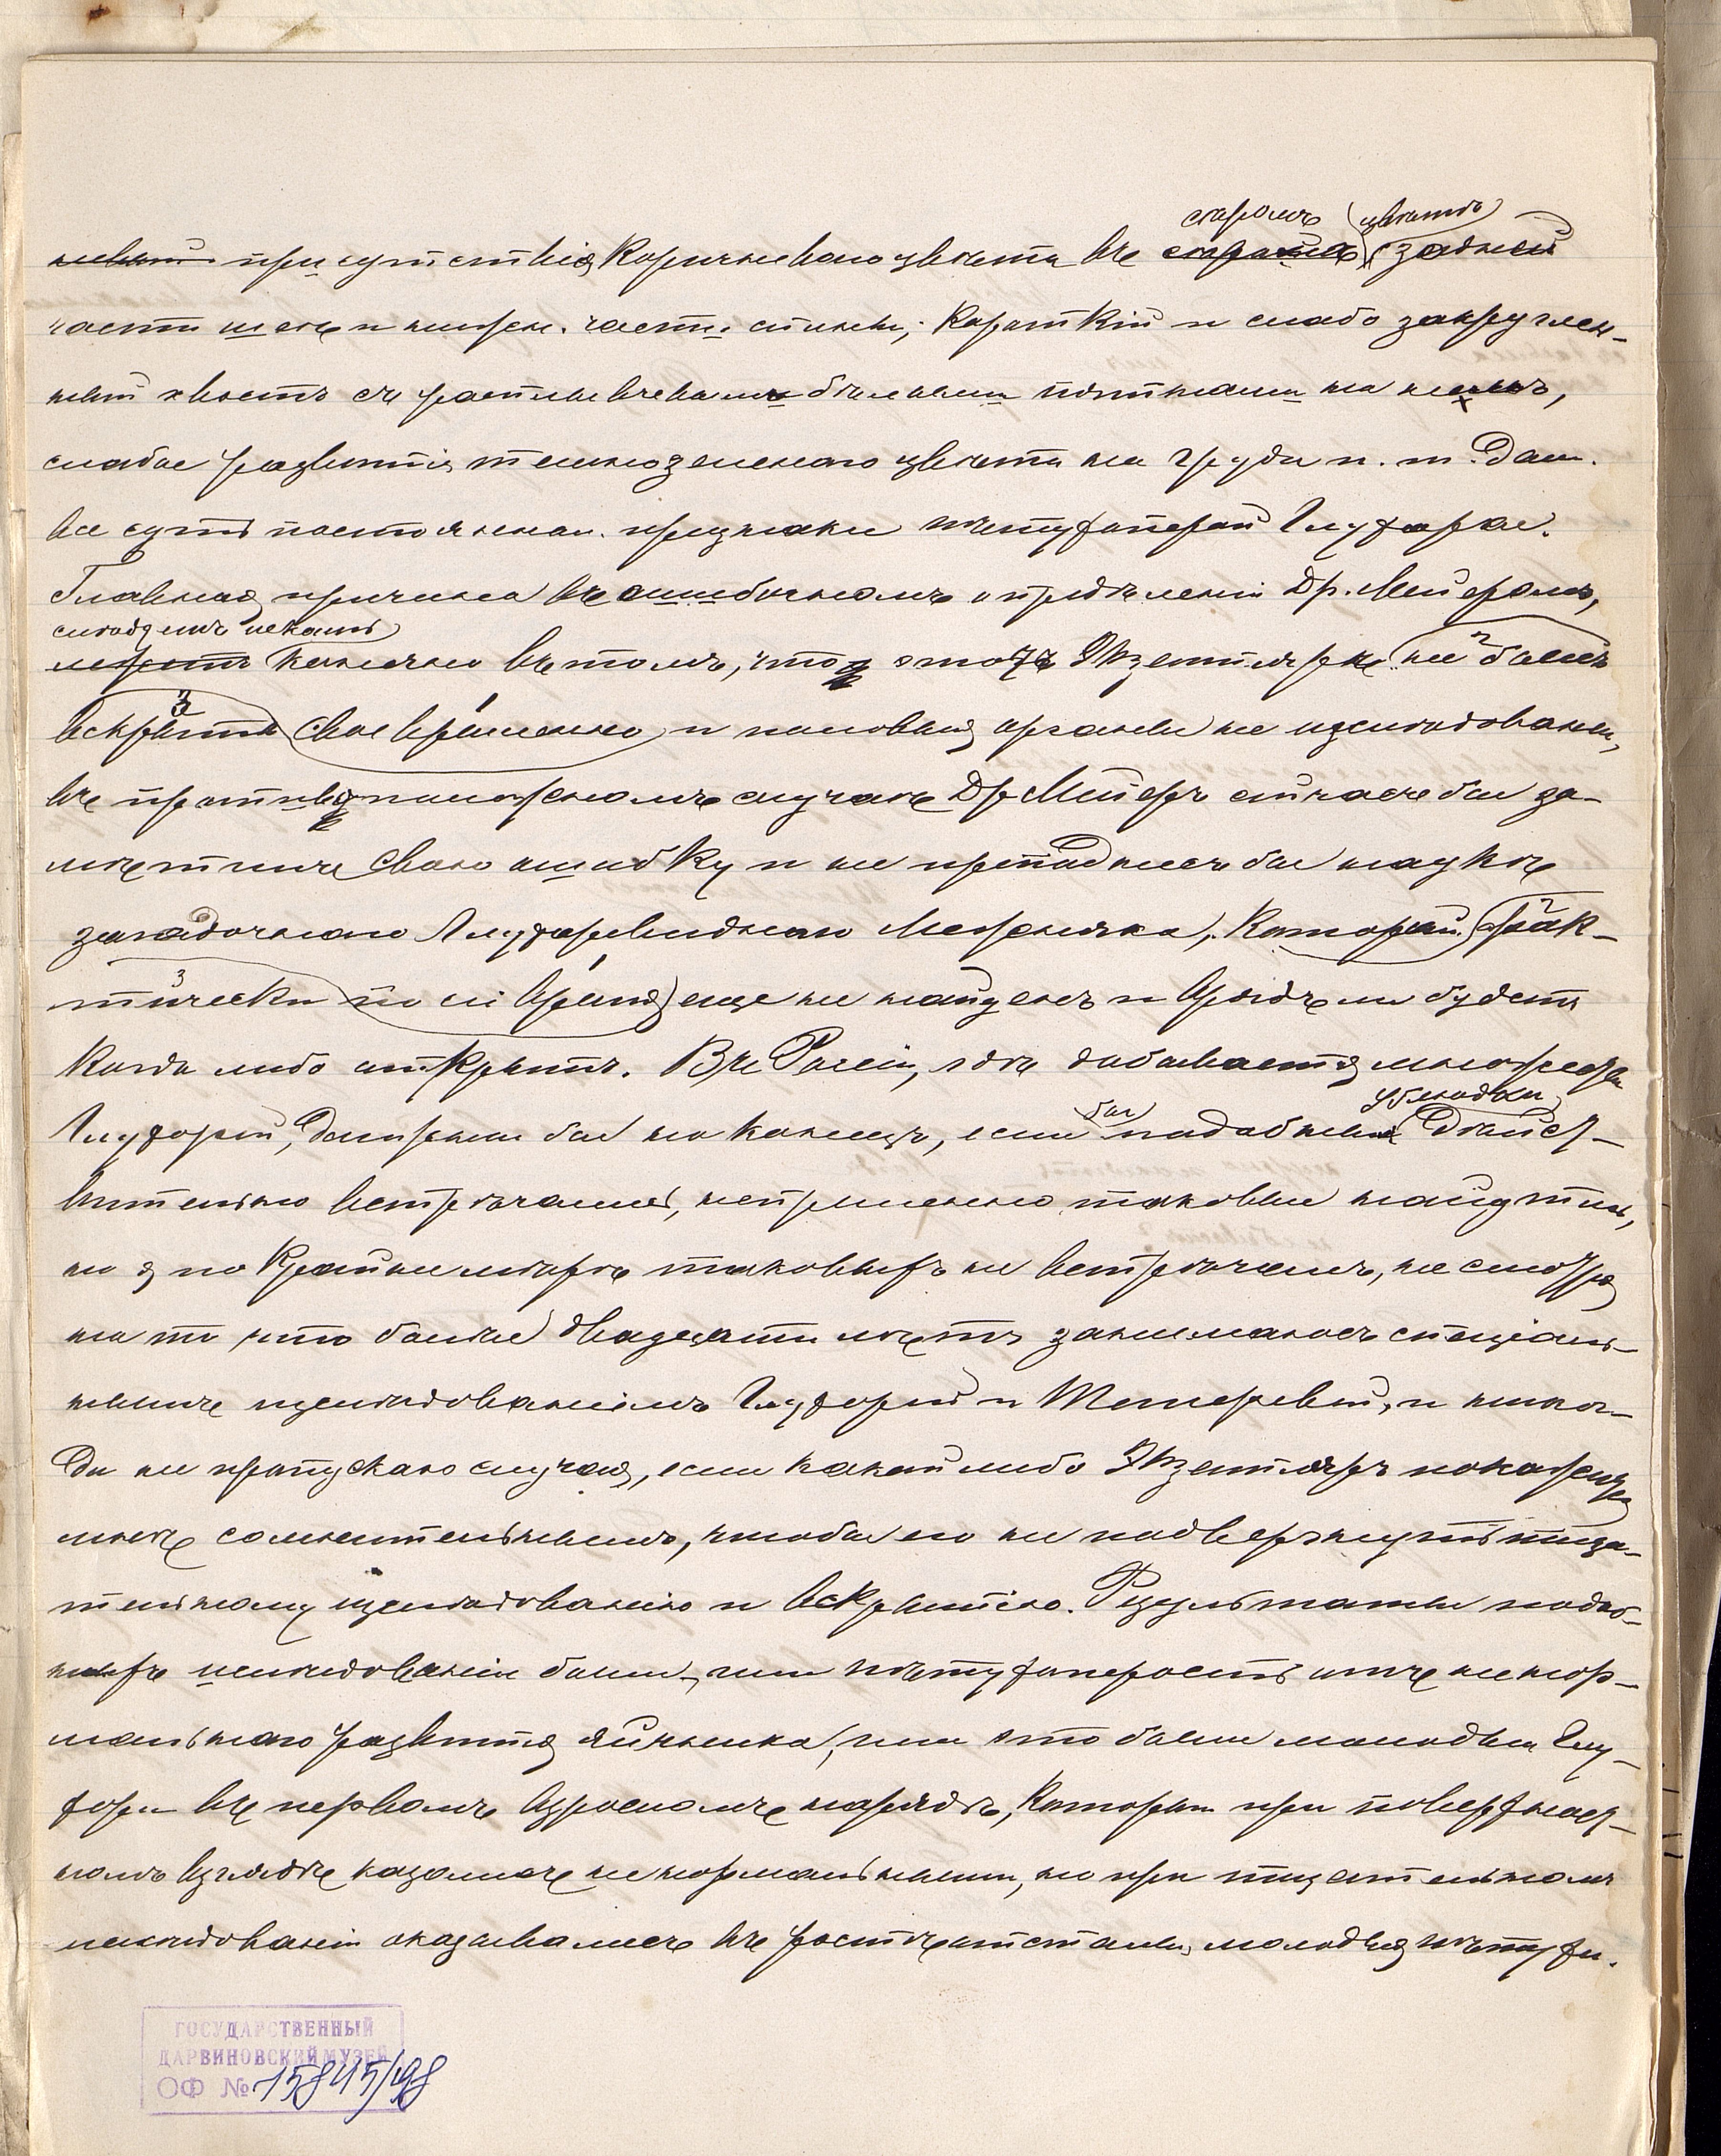 старомъ цвѣтѣ
присутствія коричневаго цвѣта въ задней
части шеи и нижн. части спины; короткій и слабо закруглен-
ный хвостъ съ расплывчевами бѣлыми пятнами на немъ,
слабое развитія темнозеленаго цвѣта на груди и. т. дал.
все суть постоянная. признаки пѣтухоперой Глухарки.
Главная причина въ ошибочномъ опредѣленіи Др. Мейеромъ,
слѣдуетъ искать
конечно въ томъ, что этотъ Экземпляръ не былъ
вскрытъ своевременно и половыя органы не изслѣдованы,
въ противуположномъ случаѣ Др Мейеръ сейчасъ бы за-
мѣтилъ свою ошибку и не преподнесъ бы наукѣ
загадочнаго Глухаревиднаго Межняка, который фак-
тически по сі время еще не найденъ и врядъ ли будетъ
когда либо открытъ. Въ Россіи, гдѣ добывается множество
ублюдки
Глухарей, должны бы на конецъ, если бы подобные дѣйст-
вительно встрѣчались, непременно таковые найдтись,
но я по крайне мѣрѣ таковыхъ не встрѣчалъ, не смотря
на то что болѣе двадцати лѣтъ занимаюсь спеціаль-
нымъ изслѣдованіемъ Глухарей и Тетеревей, и никог-
да не пропускаю случая, если какой либо Экземпляръ покажется
мнѣ сомнительнымъ, чтобы его не подвергнуть тща-
тельному изслѣдованію и вскрытію. Результаты подоб-
ныхъ изслѣдованій были, или пѣтухоперость отъ ненор-
мальнаго развитія яичника, или это были молодыи Глу-
хари въ первомъ взросломъ нарядѣ, которыи при поверхност-
номъ взглядѣ казались ненормальными, но при тщательномъ
изслѣдованіи оказывались въ ростѣ отсталыя молодыя пѣтухи.
ГОСУДАРСТВЕННЫЙ
ДАРВИНОВСКИЙ МУЗЕЙ
ОФ № 15845/198